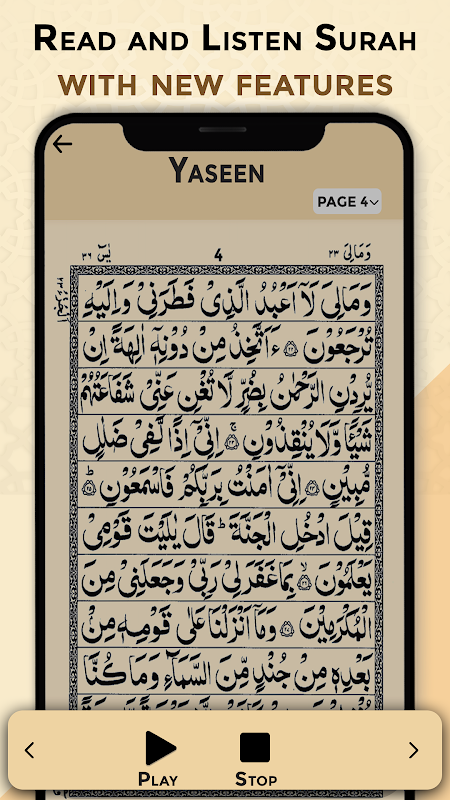 Read and Listen Surah
with new features
Yaseen
PAGE 4
وَمَالِیَ ٢٣
4
یٰسٓ ٣٦
وَمَالِیَ لَاۤ اَعْبُدُ الَّذِیْ فَطَرَنِیْ وَاِلَیْهِ
تُرْجَعُوْنَ ﴿٢٢﴾ ءَاَتَّخِذُ مِنْ دُوْنِهٖۤ اٰلِهَةً اِنْ
یُّرِدْنِ الرَّحْمٰنُ بِضُرٍّ لَّا تُغْنِ عَنِّیْ شَفَاعَتُهُمْ
شَیْـًٔا وَّلَا یُنْقِذُوْنِ ﴿٢٣﴾ اِنِّیْۤ اِذًا لَّفِیْ ضَلٰلٍ
مُّبِیْنٍ ﴿٢٤﴾ اِنِّیْۤ اٰمَنْتُ بِرَبِّكُمْ فَاسْمَعُوْنِ ﴿٢٥﴾ ؕ
قِیْلَ ادْخُلِ الْجَنَّةَ ؕ قَالَ یٰلَیْتَ قَوْمِیْ
یَعْلَمُوْنَ ﴿٢٦﴾ ۙ بِمَا غَفَرَ لِیْ رَبِّیْ وَجَعَلَنِیْ مِنَ
الْمُكْرَمِیْنَ ﴿٢٧﴾ وَمَاۤ اَنْزَلْنَا عَلٰی قَوْمِهٖ مِنْۢ
بَعْدِهٖ مِنْ جُنْدٍ مِّنَ السَّمَآءِ وَمَا كُنَّا
Play
Stop